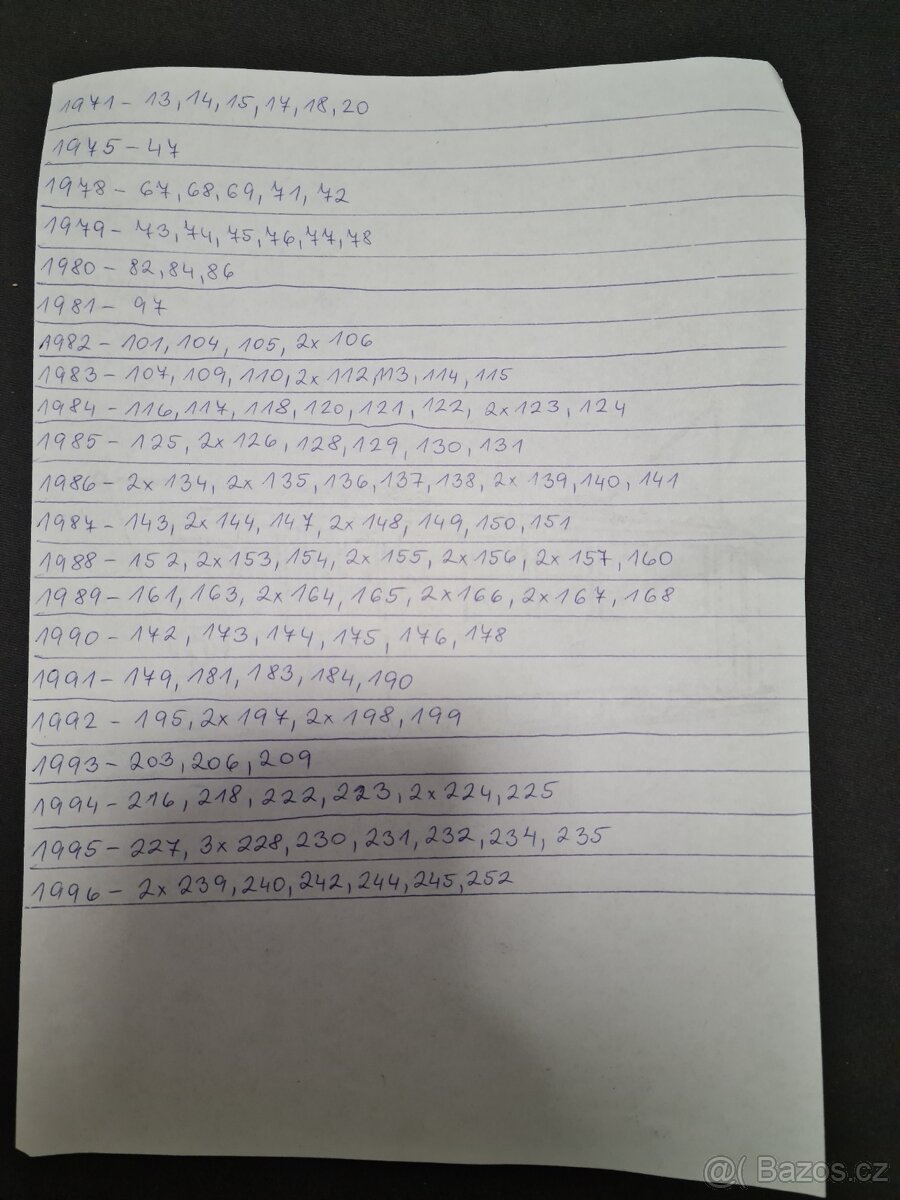 1971 - 13, 14, 15, 17, 18, 20
1975 - 47
1978 - 67, 68, 69, 71, 72
1979 - 73, 74, 75, 76, 77, 78
1980 - 82, 84, 86
1981 - 97
1982 - 101, 104, 105, 2x 106
1983 - 107, 109, 110, 2x 112, 113, 114, 115
1984 - 116, 117, 118, 120, 121, 122, 2x 123, 124
1985 - 125, 2x 126, 128, 129, 130, 131
1986 - 2x 134, 2x 135, 136, 137, 138, 2x 139, 140, 141
1987 - 143, 2x 144, 147, 2x 148, 149, 150, 151
1988 - 152, 2x 153, 154, 2x 155, 2x 156, 2x 157, 160
1989 - 161, 163, 2x 164, 165, 2x 166, 2x 167, 168
1990 - 172, 173, 174, 175, 176, 178
1991 - 179, 181, 183, 184, 190
1992 - 195, 2x 197, 2x 198, 199
1993 - 203, 206, 209
1994 - 216, 218, 222, 223, 2x 224, 225
1995 - 227, 3x 228, 230, 231, 232, 234, 235
1996 - 2x 239, 240, 242, 244, 245, 252
@( Bazos.cz